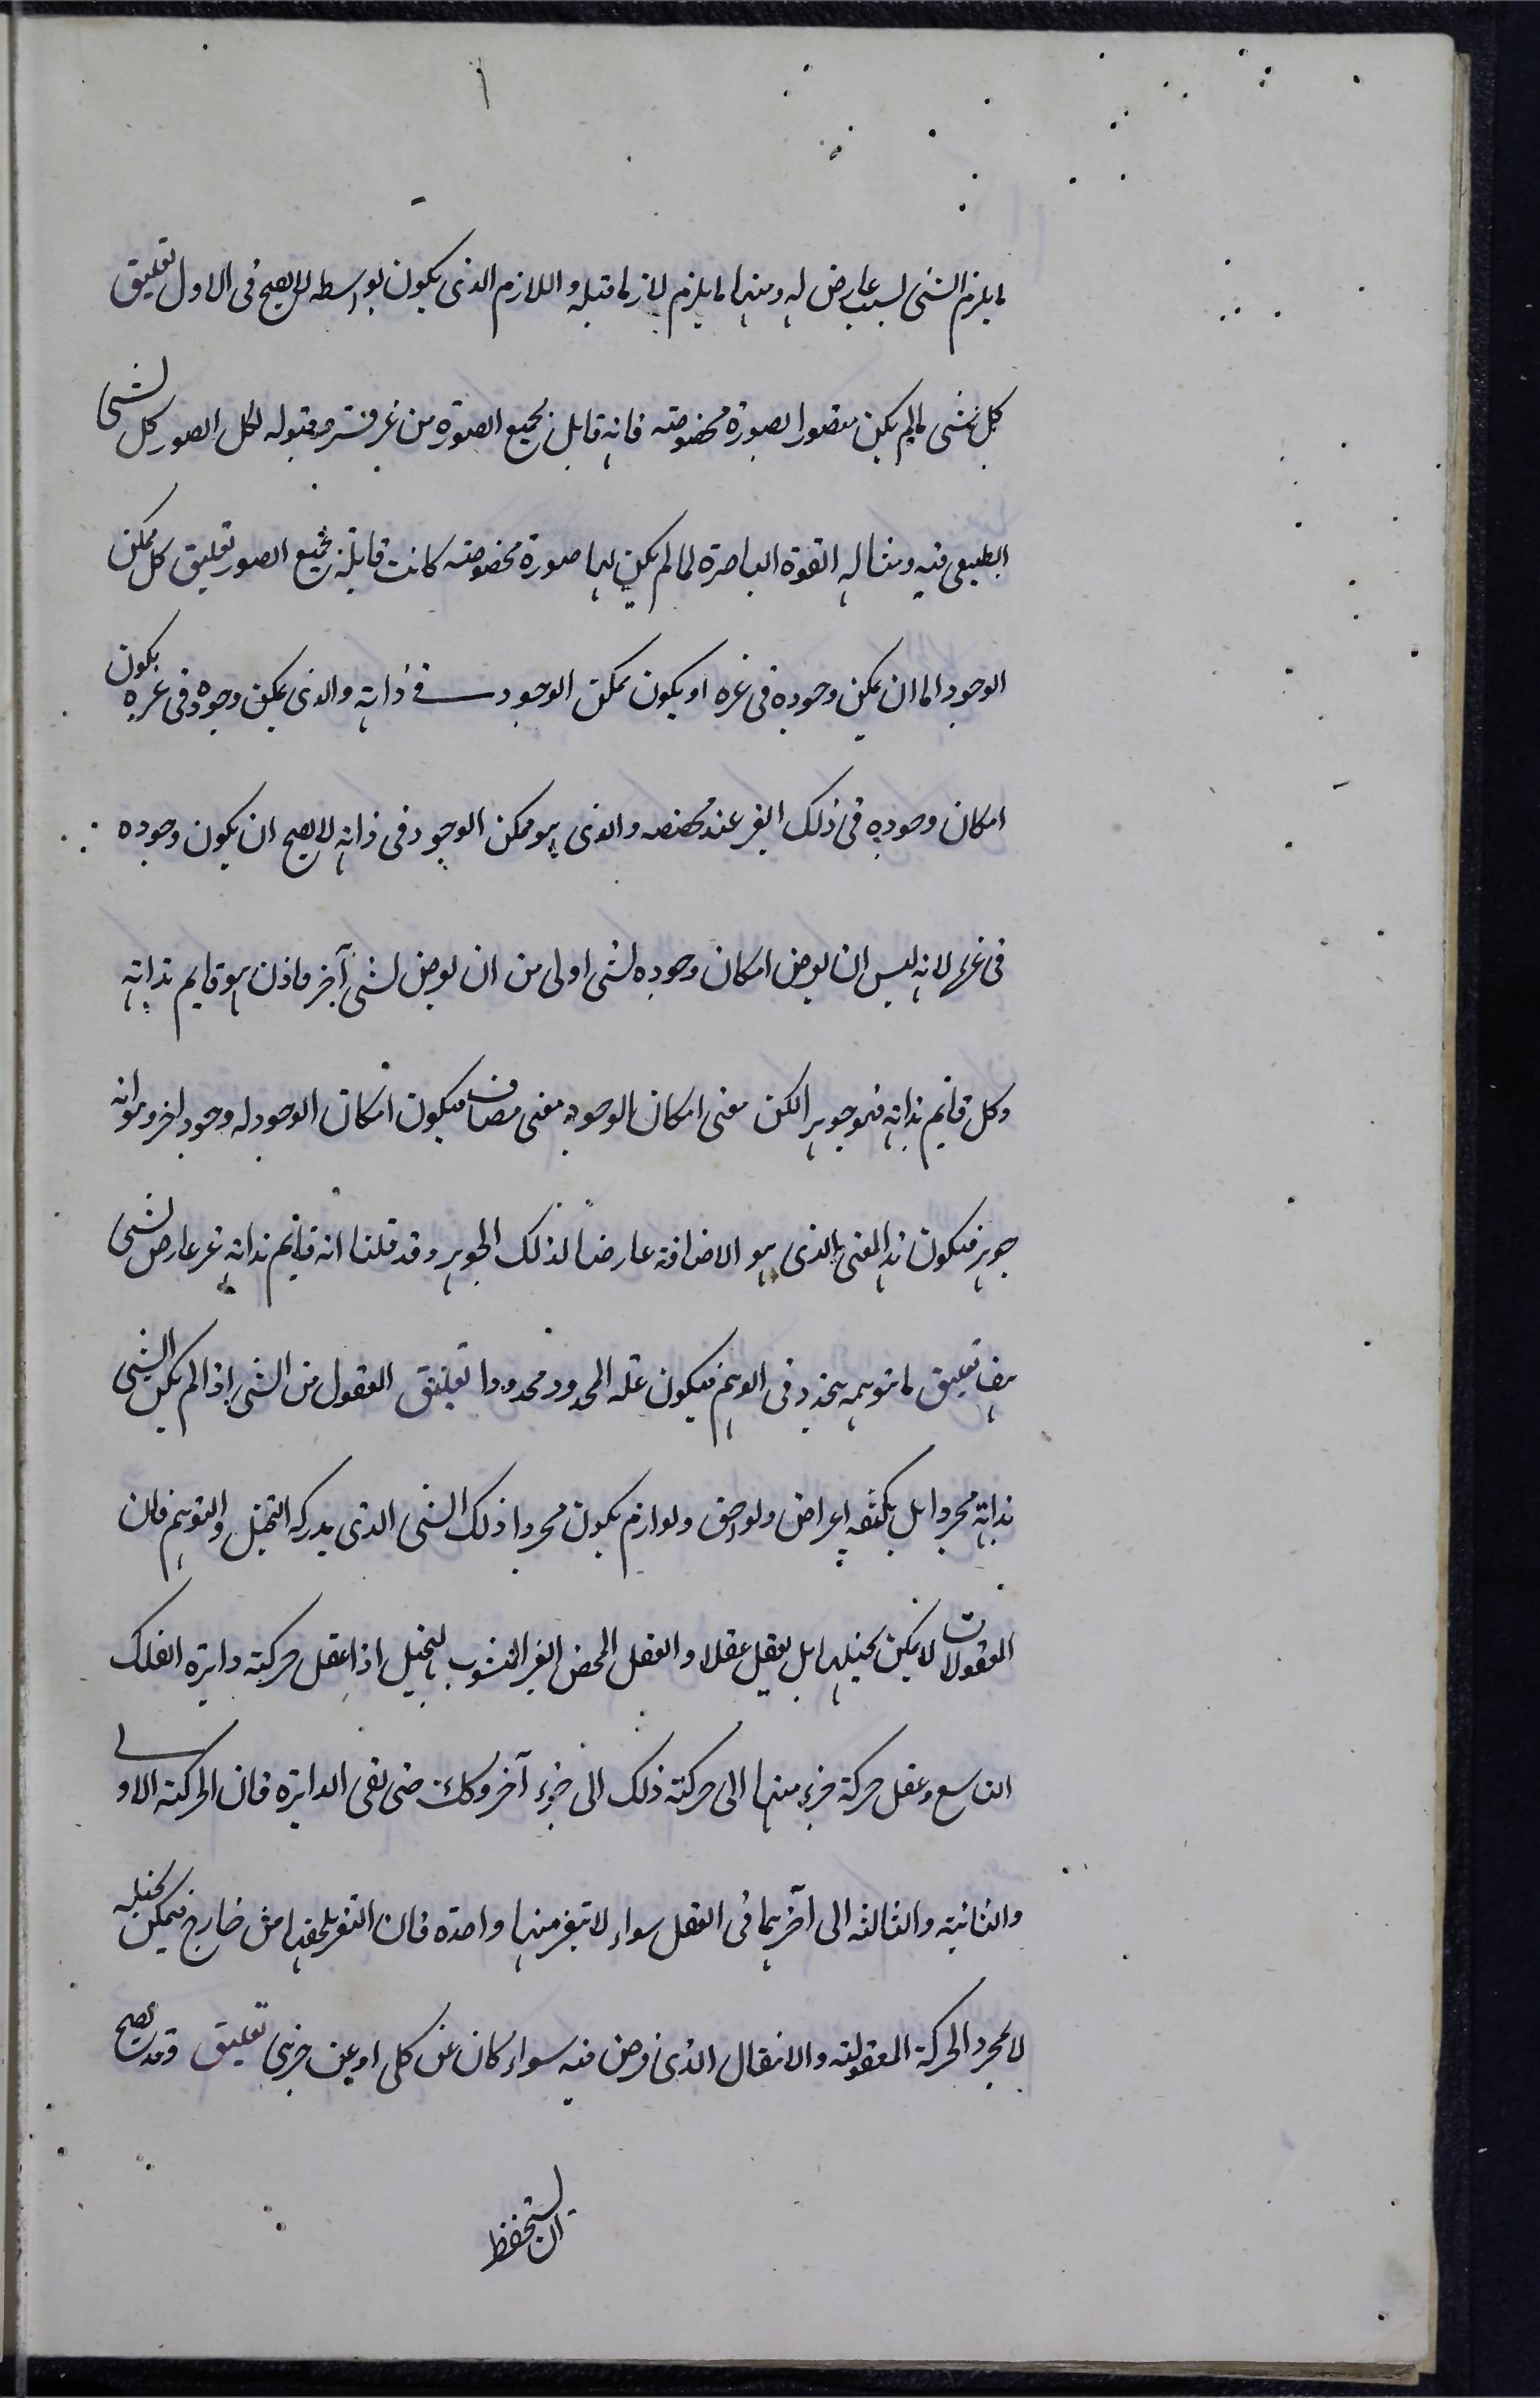 ما يلزم الشئ لسبب عارض له ومنها ما يلزم لازما قبله واللازم الذى يكون بواسطه لا يصح فى الاول تعليق
كل شئ مالم يكن متصورا بصورة مخصوصة فانه قابل بجميع الصورة من غير قسر مقبوله لكل الصور كل لشئ
الطبيعى فيه ومثاله القوة الباصرة لما لم يكن لها صورة مخصوصة كانت قابلة بجميع الصور تعليق كل ممكن
الوجود اما ان يمكن وجوده فى غيره او يكون ممكن الوجود فى ذاته والذى يمكن وجوده فى غيره يكون
امكان وجوده فى ذلك الغير عند والذى هو ممكن الوجود فى ذاته لا يصح ان يكون وجوده
فى غيرها لانه ليس ان يعرض امكان وجوده لشئ اولى من ان يعرض لشئ آخر فاذن هو قايم بذاته
وكل قايم بذاته فهو جوهر لكن معنى امكان الوجود معنى مضاف فيكون امكان الوجود له وجود اخر وهو انه
جوهر فيكون هذا المعنى الذى هو الاضافة عارضا لذلك الجوهر وقد قلنا انه قايم بذاته غير عارض لشئ
هف تعليق ما تتوهمه يتحدد فى الوهم فيكون علة المحدود محدودا تعليق المعقول من الشئ اذا لم يكن الشئ
بذاته مجردا بل يكتنفه اعراض ولواحق ولوازم يكون مجردا ذلك الشئ الذى يدركه التخيل والتوهم فان
المعقولات لا يمكن تخيلها بل يعقل عقلا والعقل المحض الغير المشوب بالتخيل اذا عقل حركته دايرة الفلك
التاسع وعقل حركة جزء منها الى حركته ذلك الى جزء آخر وكك حتى يفى الدايرة فان الحركته الاولى
والثانية والثالثه الى آخرها فى العقل سواء لا تتغير منها واحدة فان التغير يلحقها من خارج فيمكن تخيله
لا بمجرد الحركة المعقولة والانتقال الذى فرض فيه سواء كان عن كلى او عن جزئى تعليق وقد يصح
ان يستحفظ